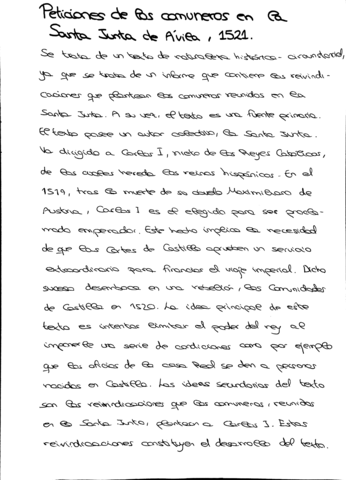 Peticiones de los comuneros en la
Santa Junta de Ávila, 1521.
Se trata de un texto de naturaleza histórico-circunstancial,
ya que se trata de un informe que contiene las reivindi-
caciones que plantean los comuneros reunidos en la
Santa Junta. A su vez, el texto es una fuente primaria.
El texto posee un autor colectivo, la Santa Junta.
Va dirigido a Carlos I, nieto de los Reyes Católicos,
de los cuales hereda los reinos hispánicos. En el
1519, tras la muerte de su abuelo Maximiliano de
Austria, Carlos I es el elegido para ser procla-
mado emperador. Este hecho implica la necesidad
de que las Cortes de Castilla aprueben un servicio
extraordinario para financiar el viaje imperial. Dicho
suceso desemboca en una rebelión, las Comunidades
de Castilla en 1520. La idea principal de este
texto es intentar limitar el poder del rey al
imponerle una serie de condiciones como por ejemplo
que los oficios de la casa Real se den a personas
nacidas en Castilla. Las ideas secundarias del texto
son las reivindicaciones que los comuneros, reunidos
en la Santa Junta, plantean a Carlos I. Estas
reivindicaciones constituyen el desarrollo del texto.